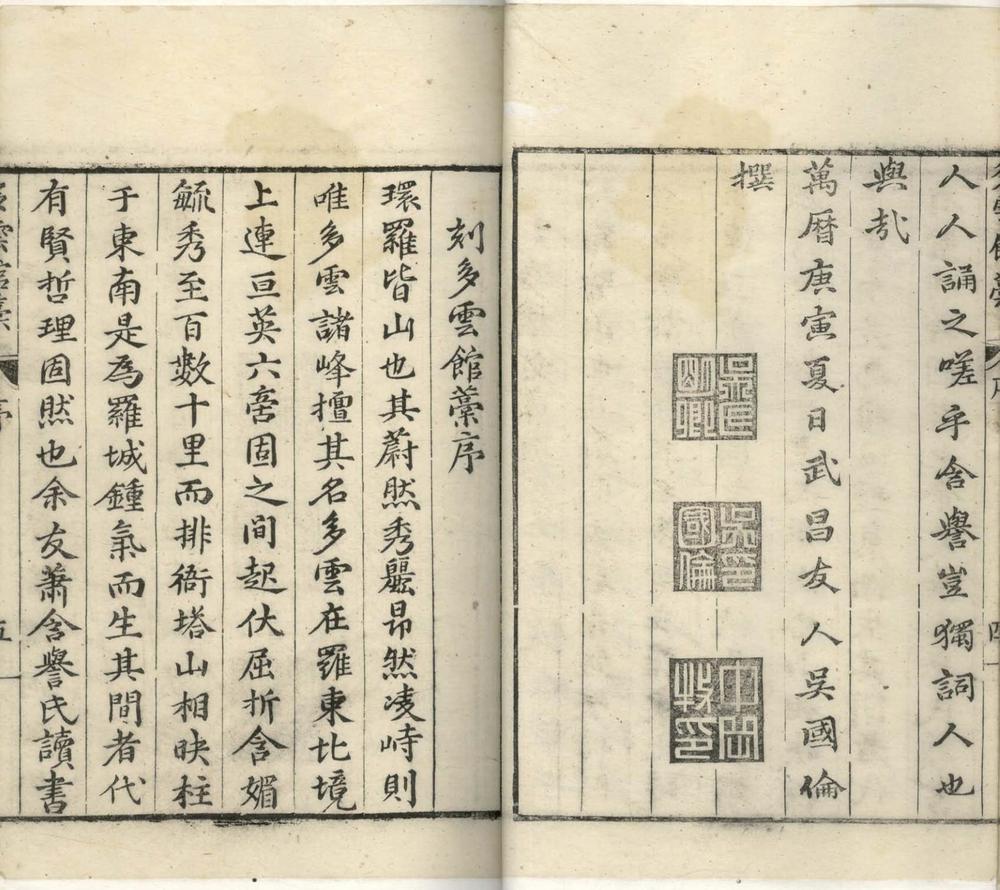 人人誦之嗟乎含譽豈獨詞人也
與㢤
萬曆庚寅夏日武昌友人吳國倫
撰
吳氏明卿
國倫
刻多雲館藁序
環羅皆山也其蔚然秀昂然凌峙則
唯多雲諸峰擅其名多雲在羅東北境
上連亘英六固之間起伏屈折含媚
毓秀至百數十里而排衙塔山相映柱
于東南是為羅城鍾氣而生其間者代
有賢哲理固然也余友蕭含譽氏讀書